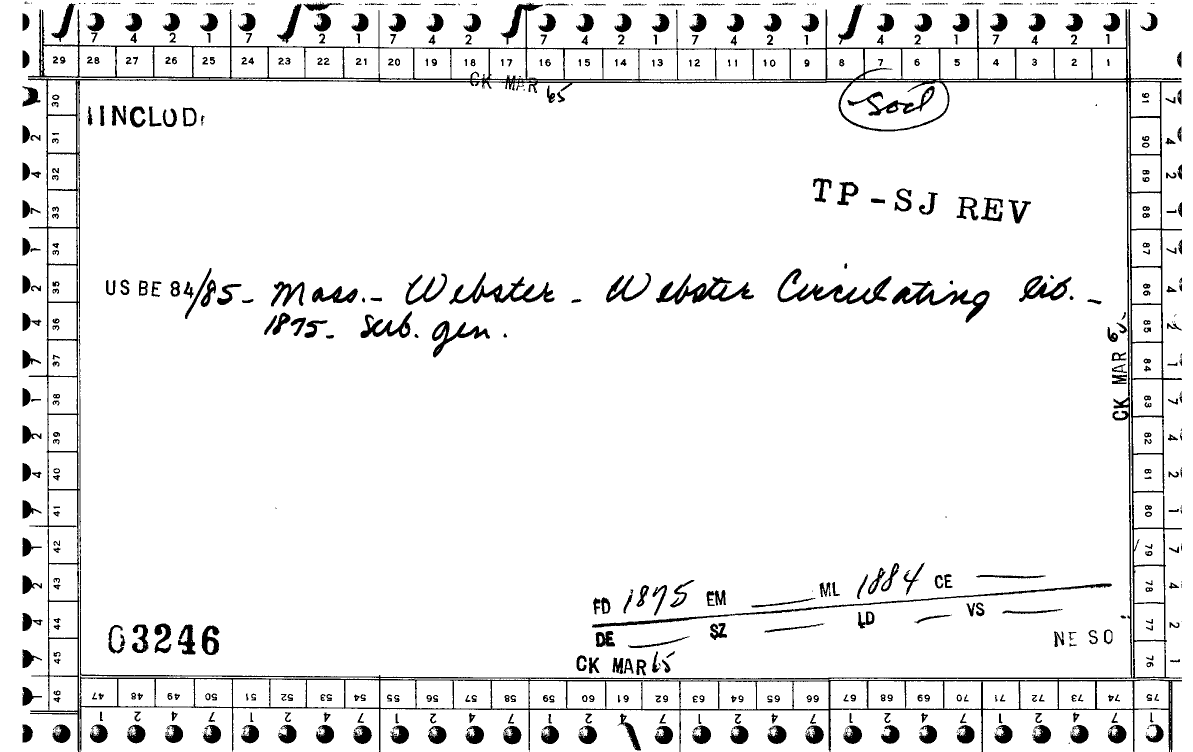 7 4 2 1 7 4 2 1 7 4 2 1 7 4 2 1 7 4 2 1 7 4 2 1 7 4 2 1
29 28 27 26 25 24 23 22 21 20 19 18 17 16 15 14 13 12 11 10 9 8 7 6 5 4 3 2 1
CK MAR 65
Socl
TP-SJ REV
US BE 84/85- Mass.- Webster- Webster Circulating lib.-
1875- sub. gen.
CK MAR 65
FD 1875 EM — ML 1884 CE —
DE — SZ — LD — VS —
03246
NE SO
CK MAR 65
30 31 32 33 34 35 36 37 38 39 40 41 42 43 44 45 46
91 90 89 88 87 86 85 84 83 82 81 80 79 78 77 76 75
47 48 49 50 51 52 53 54 55 56 57 58 59 60 61 62 63 64 65 66 67 68 69 70 71 72 73 74
1 2 4 7 1 2 4 7 1 2 4 7 1 2 4 7 1 2 4 7 1 2 4 7 1 2 4 7